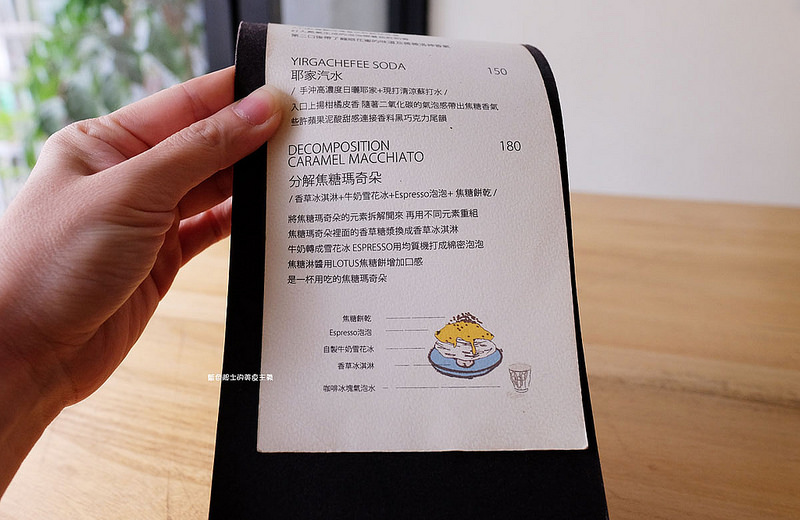 第二口後帶了
YIRGACHEFEE SODA 150
耶家汽水
/ 手沖高濃度日曬耶家+現打清涼蘇打水 /
入口上揚柑橘皮香 隨著二氧化碳的氣泡感帶出焦糖香氣
些許蘋果泥酸甜感連接香料黑巧克力尾韻
DECOMPOSITION 180
CARAMEL MACCHIATO
分解焦糖瑪奇朵
/ 香草冰淇淋+牛奶雪花冰+Espresso泡泡+ 焦糖餅乾 /
將焦糖瑪奇朵的元素拆解開來 再用不同元素重組
焦糖瑪奇朵裡面的香草糖漿換成香草冰淇淋
牛奶轉成雪花冰 ESPRESSO用均質機打成綿密泡泡
焦糖淋醬用LOTUS焦糖餅增加口感
是一杯用吃的焦糖瑪奇朵
焦糖餅乾
Espresso泡泡
自製牛奶雪花冰
香草冰淇淋
咖啡冰塊氣泡水